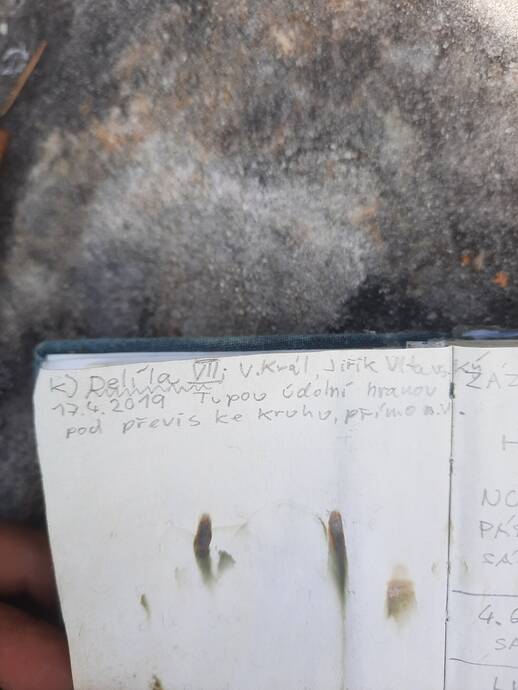 k) Delíla VII; V. Král, Jiřík Vltavský
17.4.2019 Tupou údolní hranou
pod převis ke kruhu, přímo n.v.
ZÁZ
H
NO
PÁS
SÁ
4.6
SA